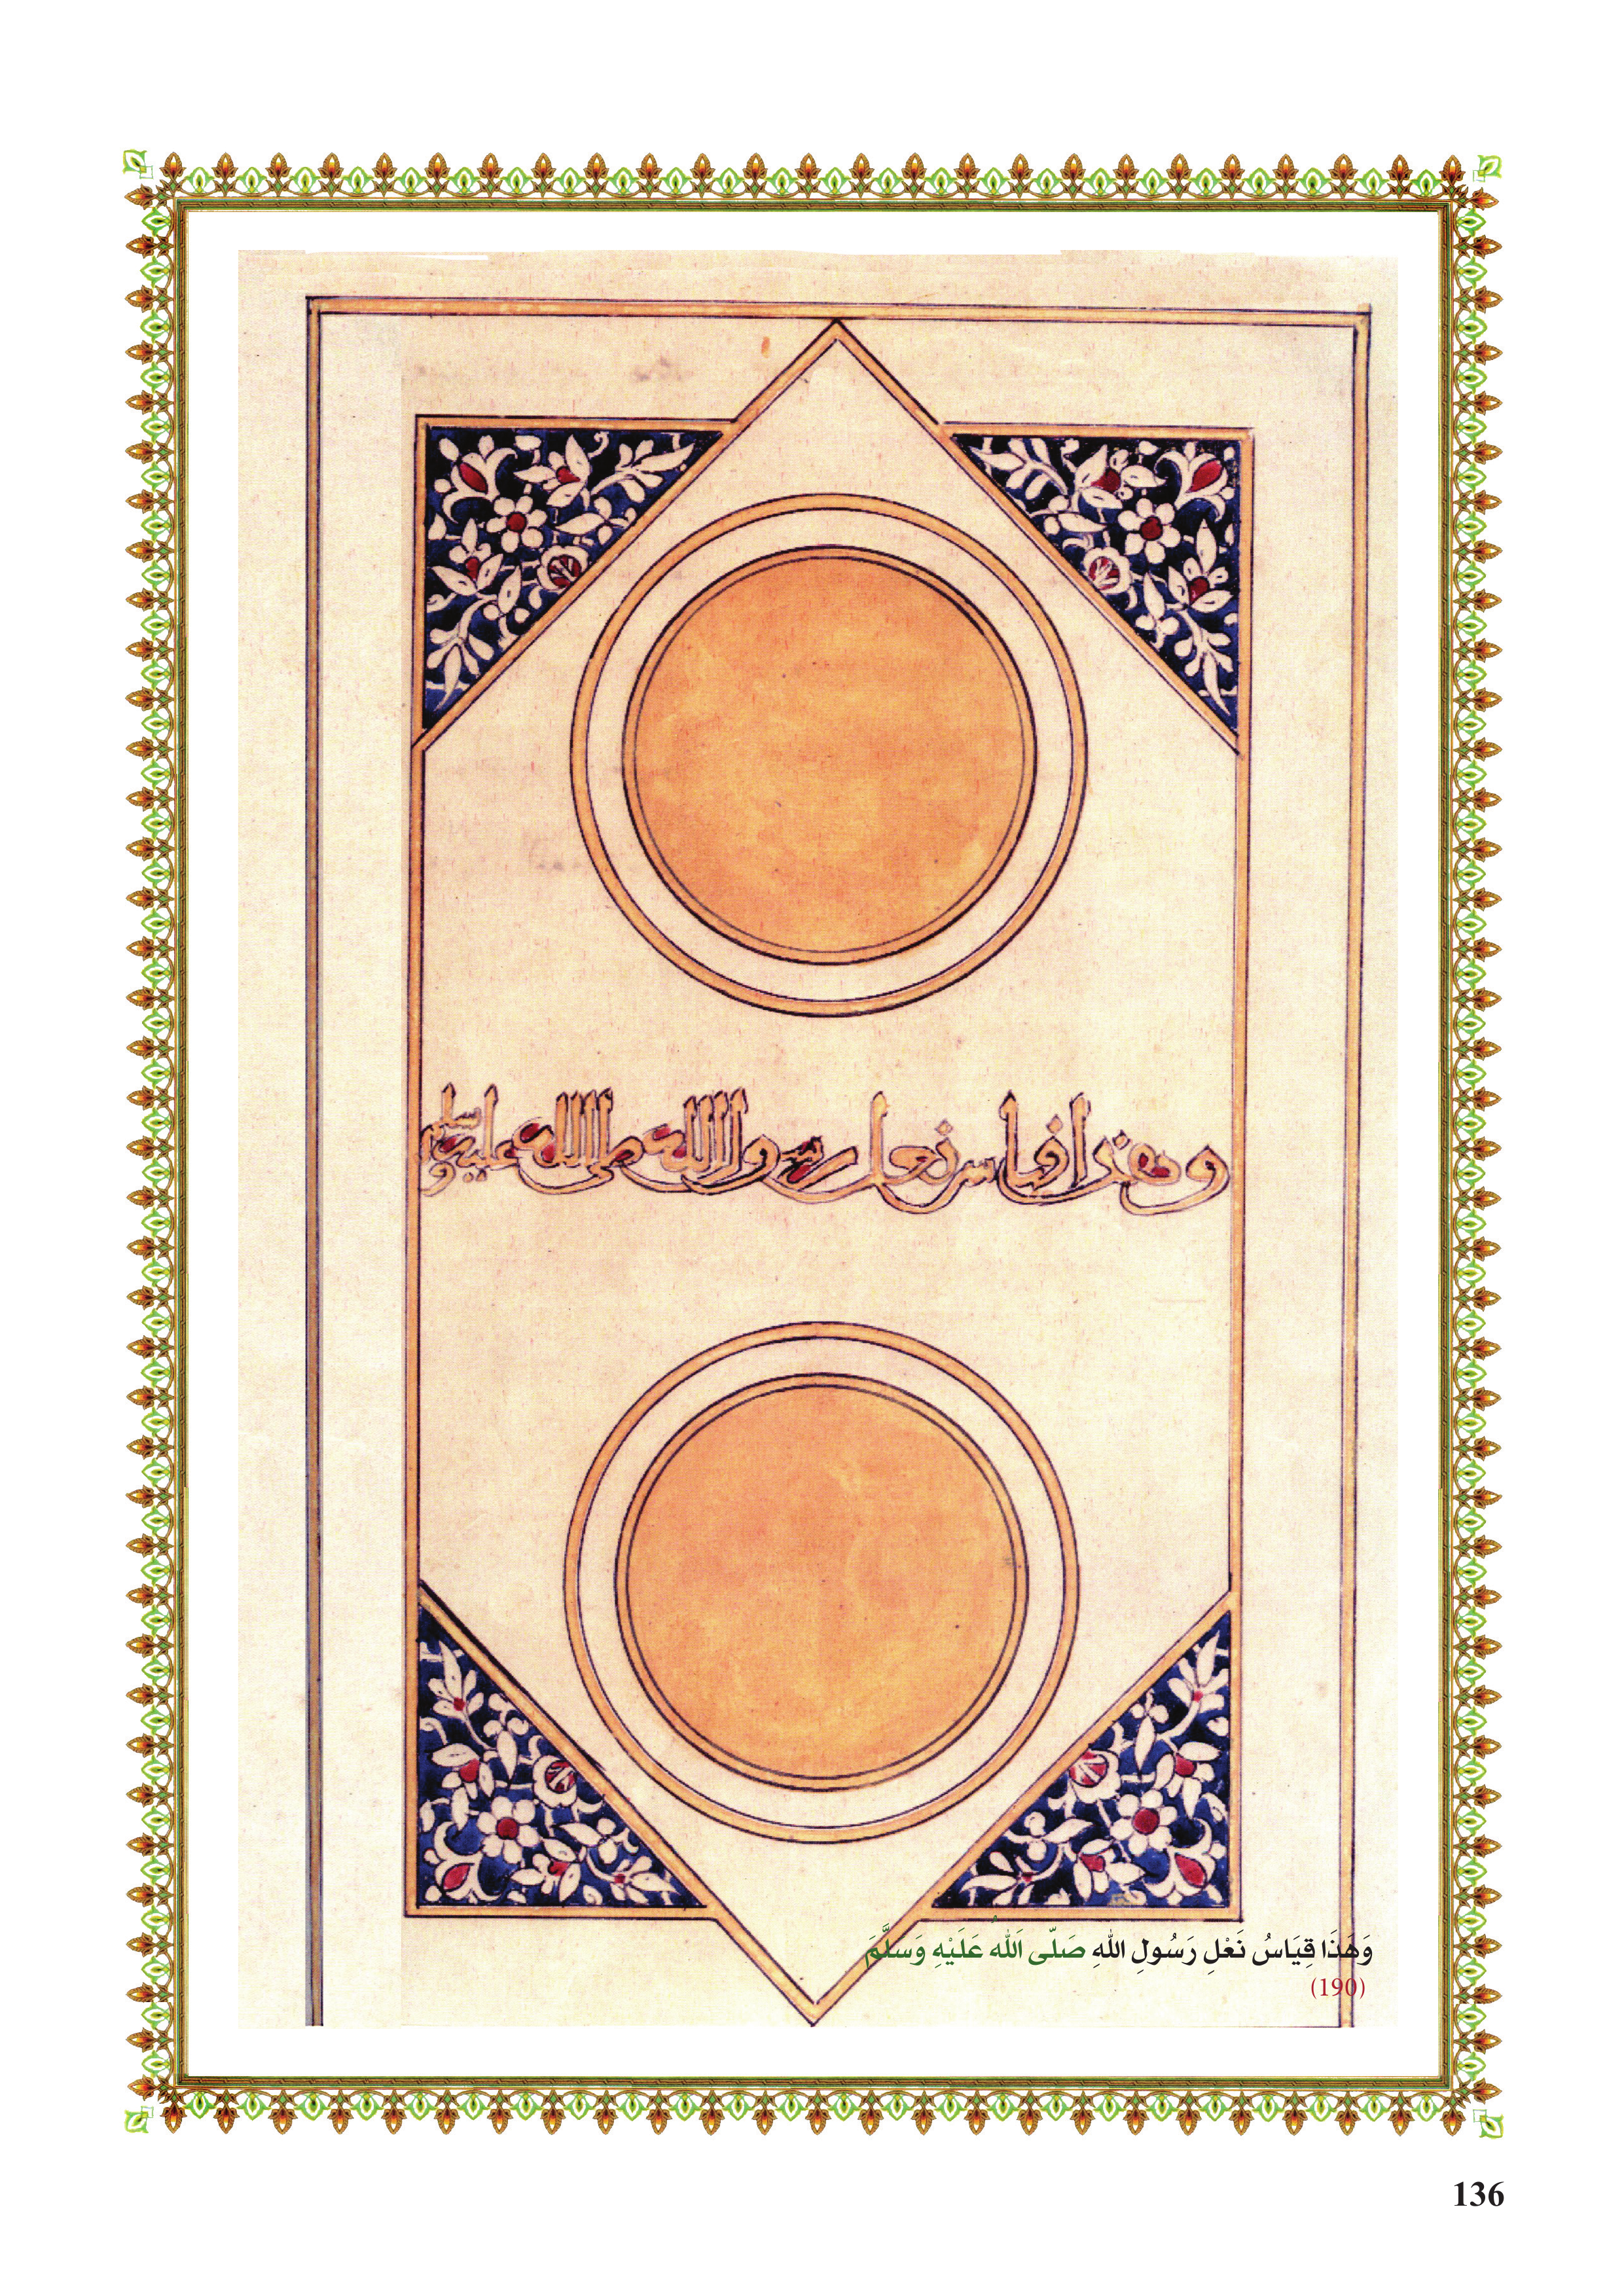 وهذا فياس نعل رسول الله صلى الله عليه وسلم
وَهَذَا قِيَاسُ نَعْلِ رَسُولِ اللهِ صَلَّى اَللهُ عَلَيْهِ وَسَلَّمَ
(190)
136